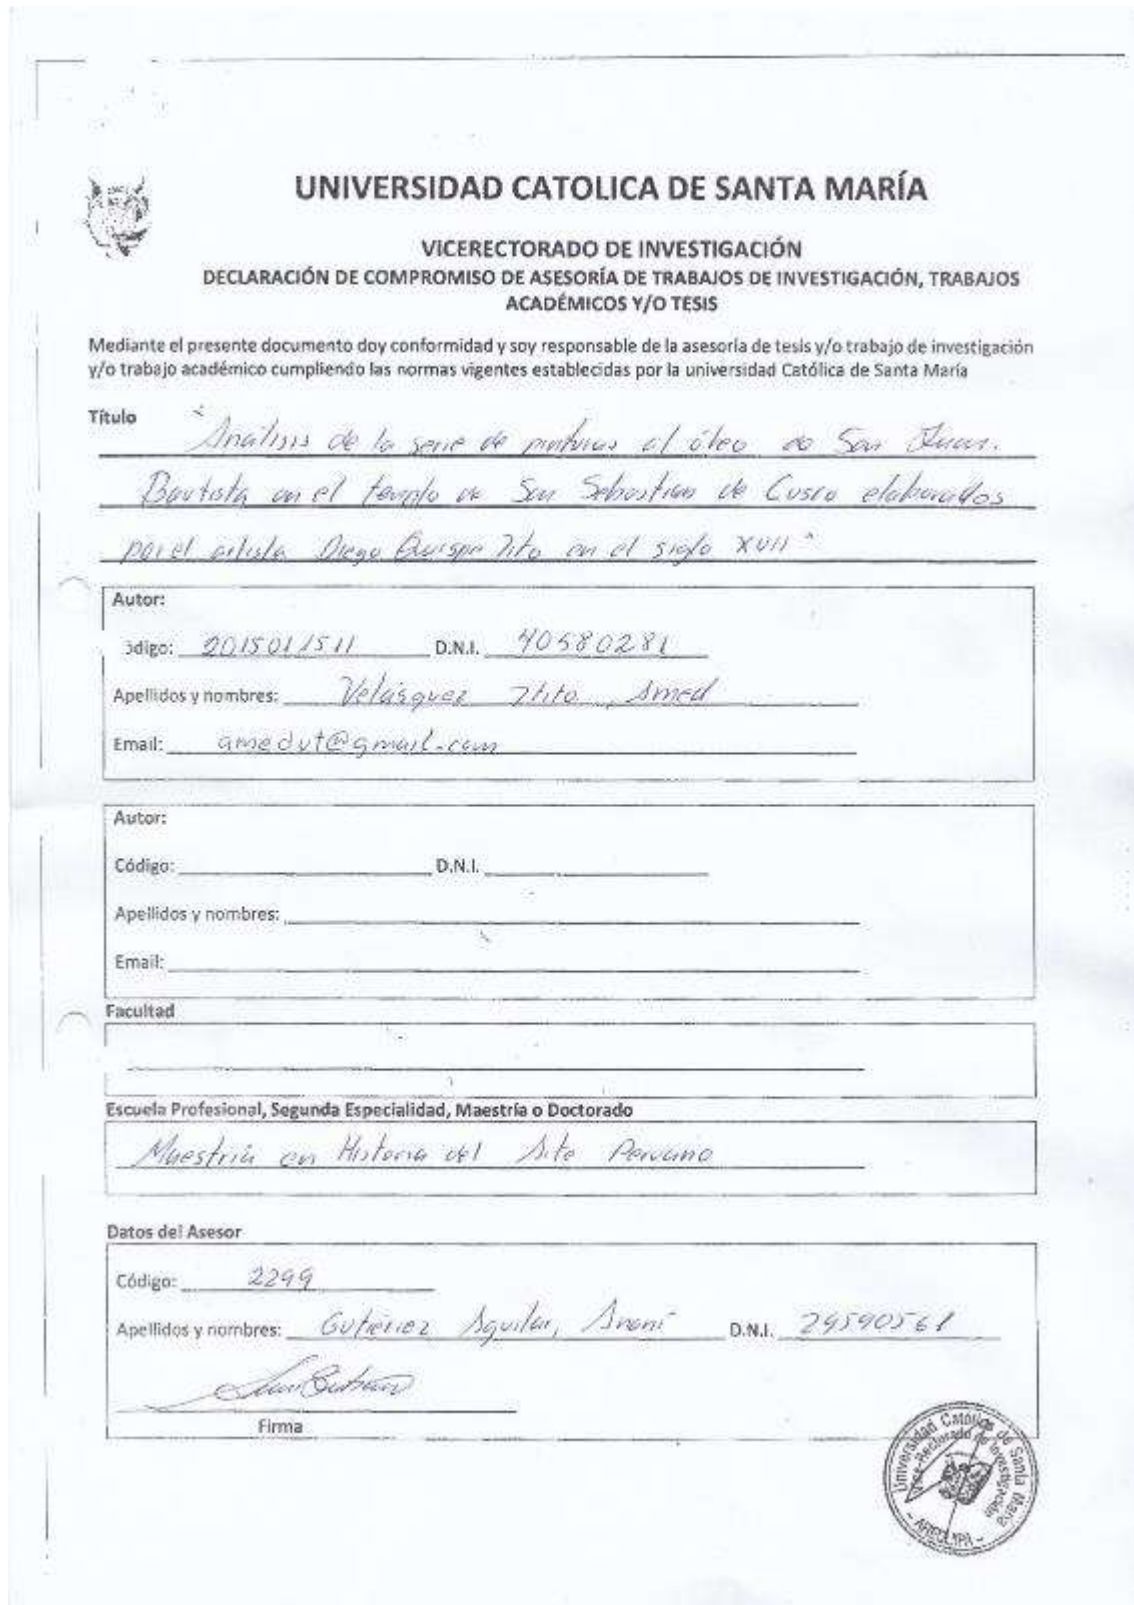 UNIVERSIDAD CATOLICA DE SANTA MARÍA
VICERECTORADO DE INVESTIGACIÓN
DECLARACIÓN DE COMPROMISO DE ASESORÍA DE TRABAJOS DE INVESTIGACIÓN, TRABAJOS
ACADÉMICOS Y/O TESIS
Mediante el presente documento doy conformidad y soy responsable de la asesoría de tesis y/o trabajo de investigación
y/o trabajo académico cumpliendo las normas vigentes establecidas por la universidad Católica de Santa María
Título
"Análisis de la serie de pinturas al óleo de San Juan
Bautista en el templo de San Sebastian de Cusco elaborados
por el artista Diego Quispe Tito en el siglo XVII"
Autor:
ódigo: 2015011511 D.N.I. 40580281
Apellidos y nombres: Velásquez Ttito, Amed
Email: amedvt@gmail.com
Autor:
Código: D.N.I.
Apellidos y nombres:
Email:
Facultad
Escuela Profesional, Segunda Especialidad, Maestría o Doctorado
Maestría en Historia del Arte Peruano
Datos del Asesor
Código: 2299
Apellidos y nombres: Gutiérrez Aguilar, Ananí D.N.I. 29590561
Firma
Universidad Católica de Santa María
Vice-Rectorado de Investigación
- AREQUIPA -